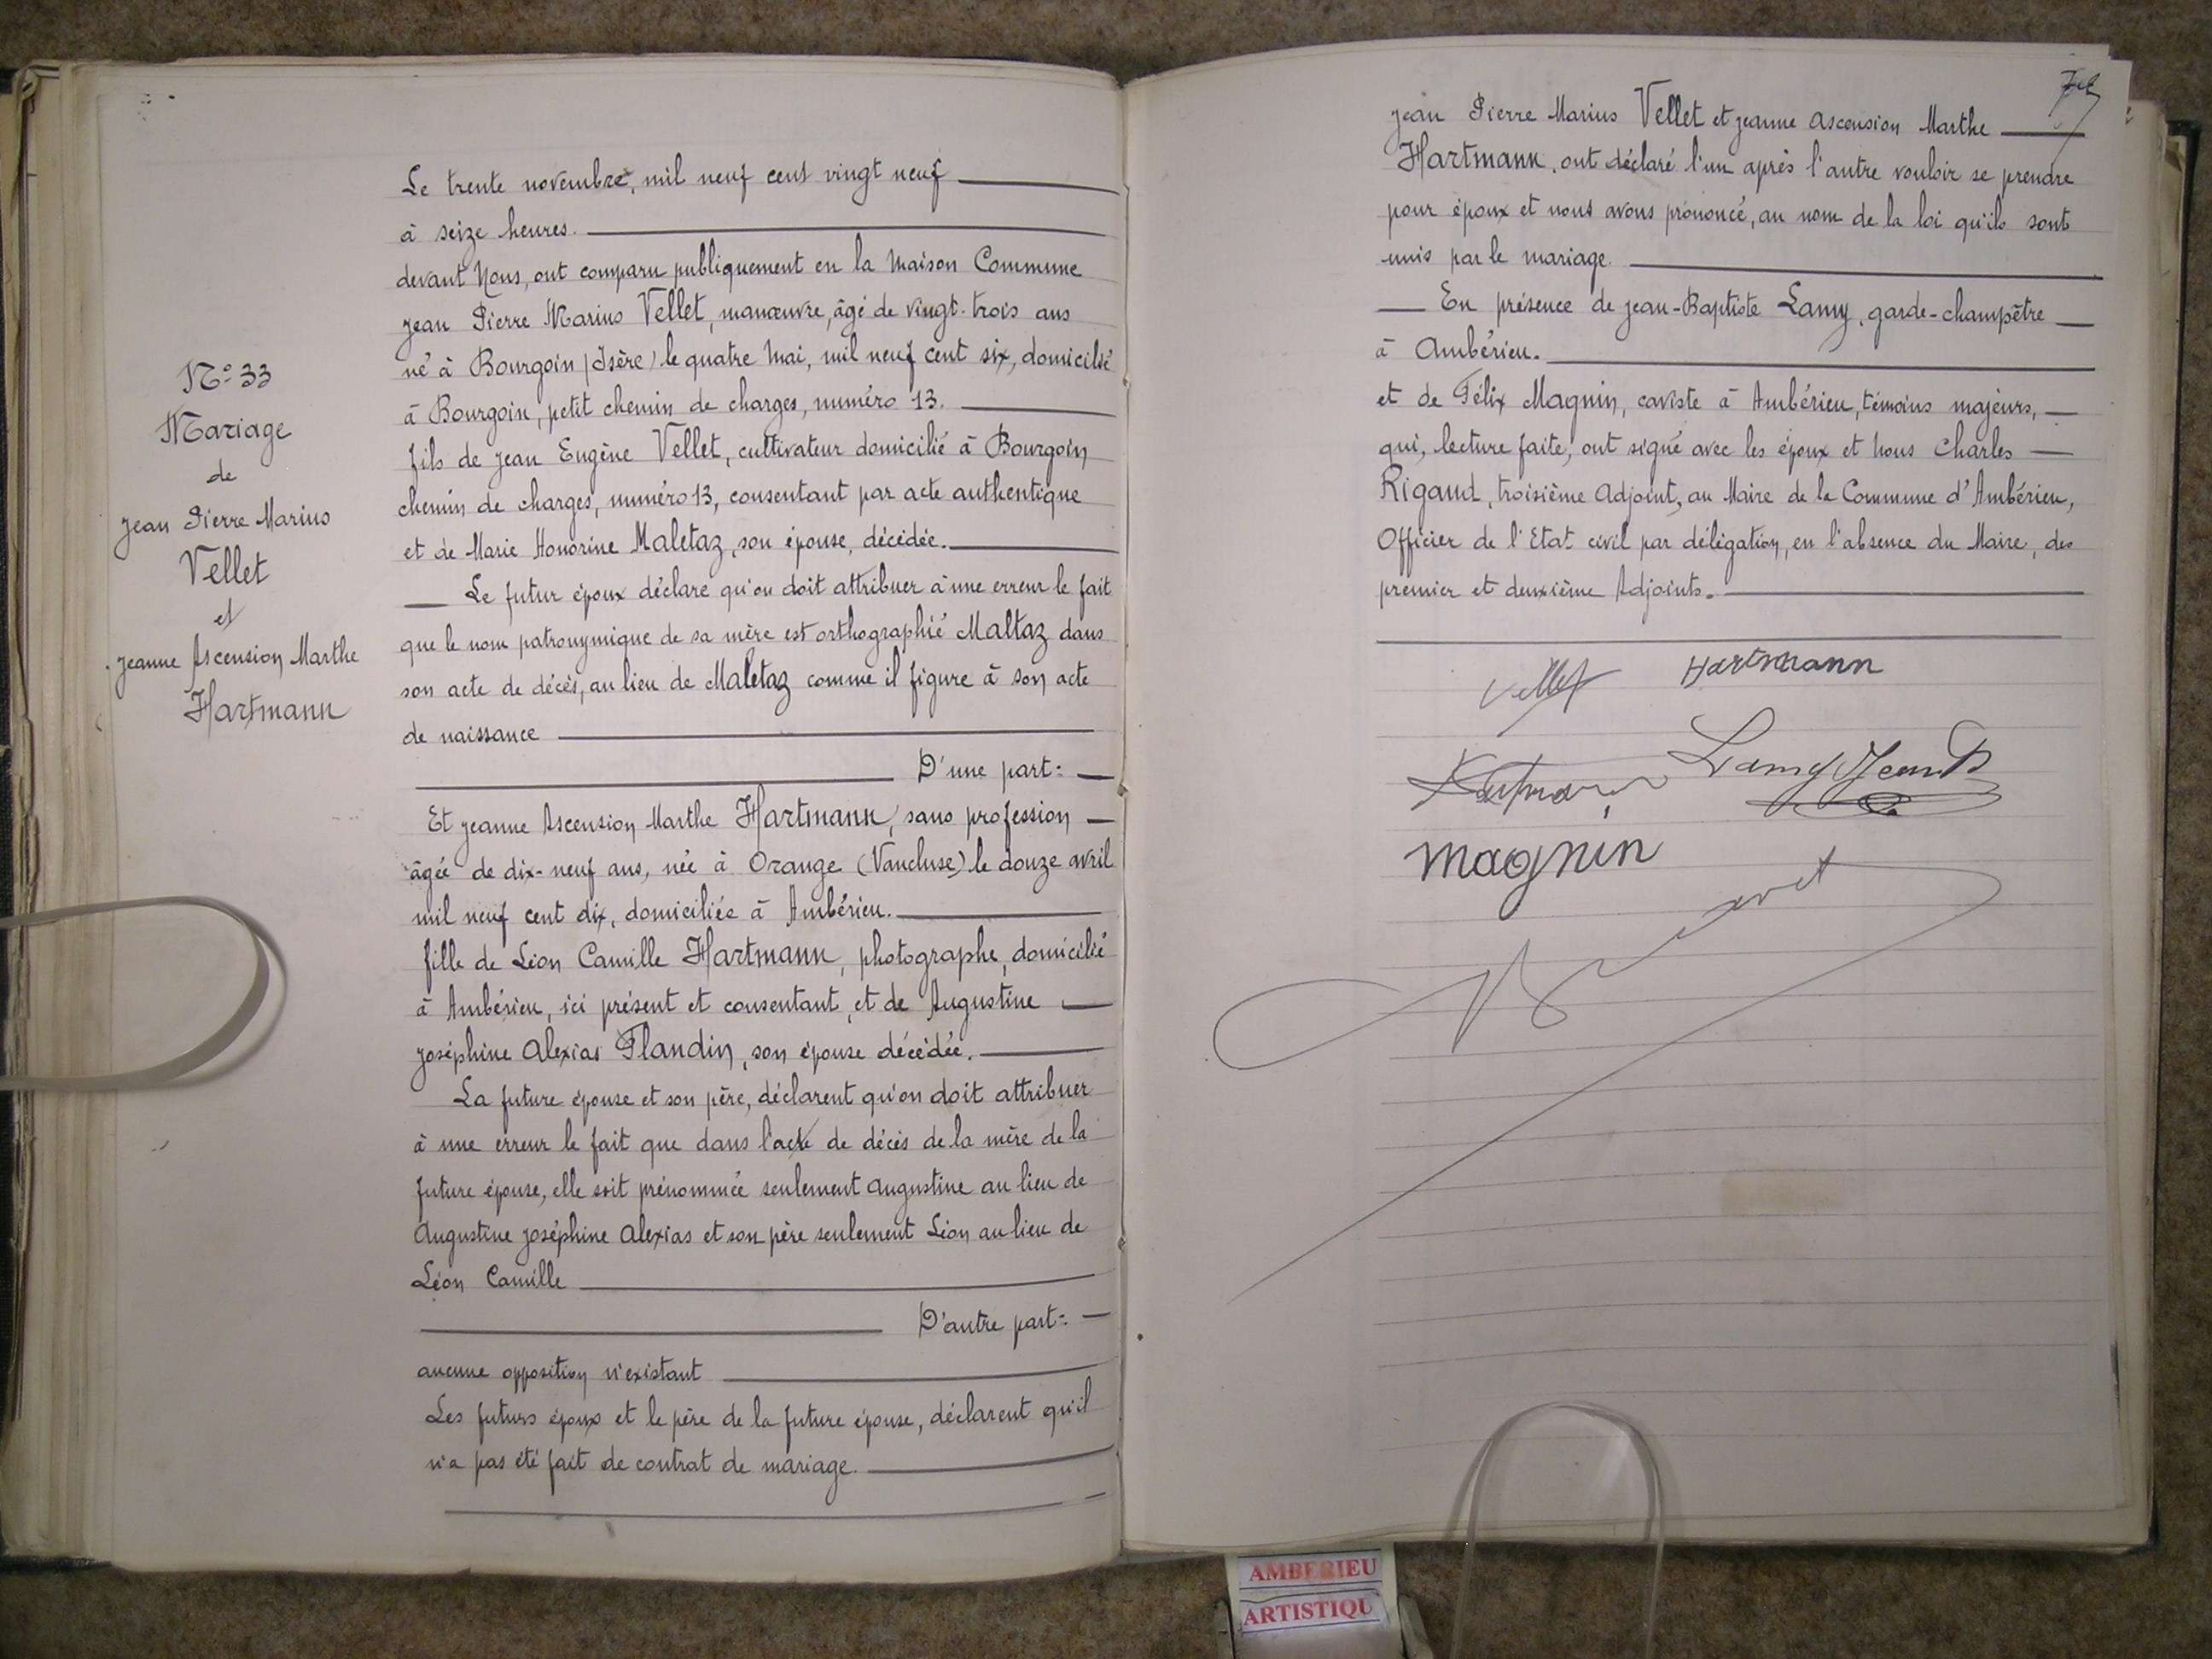 N° 33
Mariage
de
Jean Pierre Marius
Vellet
et
Jeanne Ascension Marthe
Hartmann
Le trente novembre, mil neuf cent vingt neuf
à seize heures.
devant Nous, ont comparu publiquement en la Maison Commune
Jean Pierre Marius Vellet, manœuvre, âgé de vingt-trois ans
né à Bourgoin (Isère) le quatre Mai, mil neuf cent six, domicilié
à Bourgoin, petit chemin de charges, numéro 13.
fils de Jean Eugène Vellet, cultivateur domicilié à Bourgoin
chemin de charges, numéro 13, consentant par acte authentique
et de Marie Honorine Maletaz, son épouse, décédée.
Le futur époux déclare qu'on doit attribuer à une erreur le fait
que le nom patronymique de sa mère est orthographié Maltaz dans
son acte de décès, au lieu de Maletaz comme il figure à son acte
de naissance
D'une part:
Et Jeanne Ascension Marthe Hartmann, sans profession
âgée de dix-neuf ans, née à Orange (Vaucluse) le douze avril
mil neuf cent dix, domiciliée à Ambérieu.
fille de Léon Camille Hartmann, photographe, domicilié
à Ambérieu, ici présent et consentant, et de Augustine
Joséphine Alexias Flandin, son épouse décédée.
La future épouse et son père, déclarent qu'on doit attribuer
à une erreur le fait que dans l'acte de décès de la mère de la
future épouse, elle soit prénommée seulement Augustine au lieu de
Augustine Joséphine Alexias et son père seulement Léon au lieu de
Léon Camille
D'autre part:
aucune opposition n'existant
Les futurs époux et le père de la future épouse, déclarent qu'il
n'a pas été fait de contrat de mariage.
Jean Pierre Marius Vellet et Jeanne Ascension Marthe
Hartmann, ont déclaré l'un après l'autre vouloir se prendre
pour époux et nous avons prononcé, au nom de la loi qu'ils sont
unis par le mariage.
En présence de Jean-Baptiste Lamy, garde-champêtre
à Ambérieu.
et de Félix Magnin, caviste à Ambérieu, témoins majeurs,
qui, lecture faite, ont signé avec les époux et Nous Charles
Rigaud, troisième Adjoint, au Maire de la Commune d'Ambérieu,
Officier de l'Etat civil par délégation, en l'absence du Maire, des
premier et deuxième Adjoints.
Vellet Hartmann
Hartmann Lamy Jean B
Magnin
AMBERIEU
ARTISTIQU